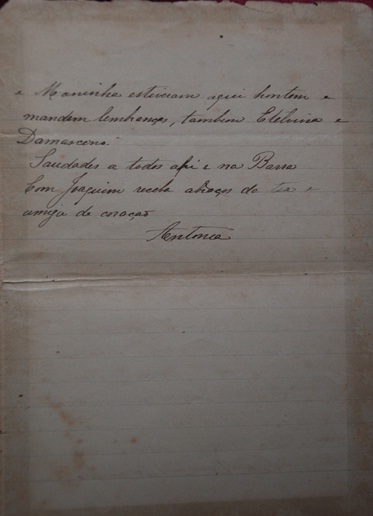 a Maninha estiveram aqui hontem e
mandam lembranças, tambem Etelvina e
Damasceno.
Saudades a todos ahi e na Barra
Com Joaquim receba abraços da tia e
amiga de coração
Antonia